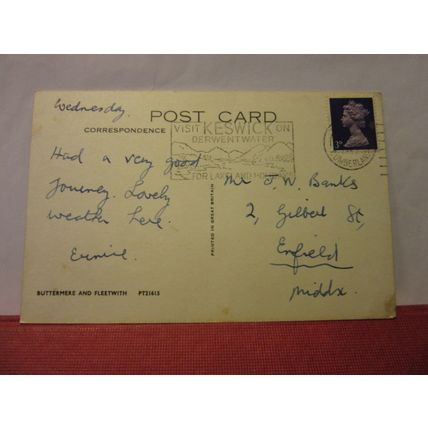 Wednesday.
POST CARD
CORRESPONDENCE
VISIT KESWICK ON
DERWENTWATER
FOR LAKELAND
3D
CUMBERLAND
Had a very good
Journey. Lovely
weather here.
Eunice.
PRINTED IN GREAT BRITAIN
Mr J. W. Banks
2, Gilbert St,
Enfield
Middx.
BUTTERMERE AND FLEETWITH PT21615